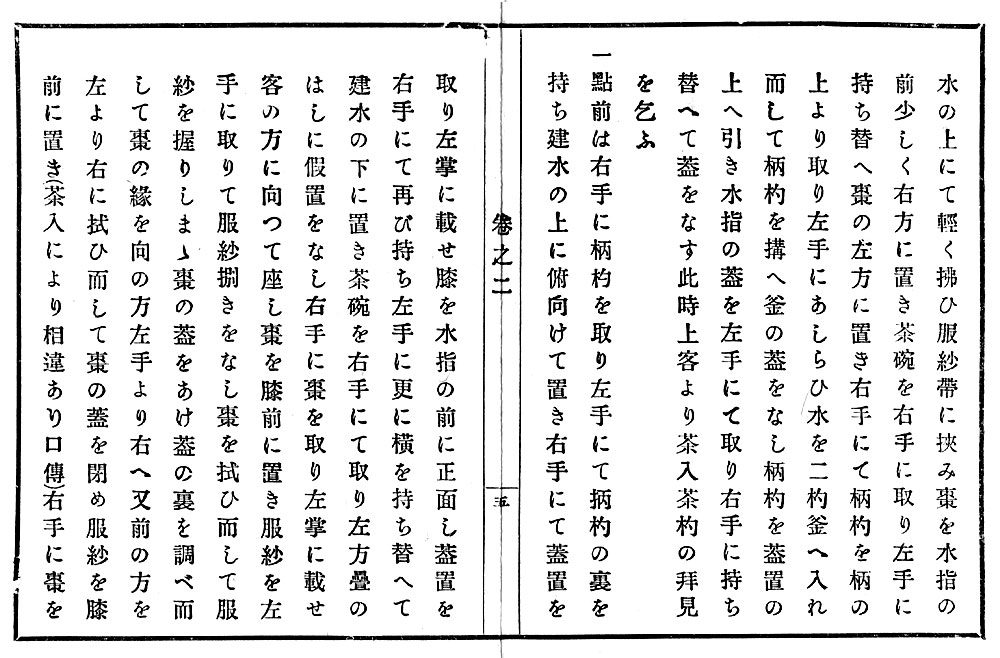 水の上にて輕く拂ひ服紗帶に挾み棗を水指の
前少しく右方に置き茶碗を右手に取り左手に
持ち替へ棗の左方に置き右手にて柄杓を柄の
上より取り左手にあしらひ水を二杓釜へ入れ
而して柄杓を搆へ釜の葢をなし柄杓を葢置の
上へ引き水指の葢を左手にて取り右手に持ち
替へて葢をなす此時上客より茶入茶杓の拜見
を乞ふ
一點前は右手に柄杓を取り左手にて柄杓の裏を
持ち建水の上に俯向けて置き右手にて蓋置を
卷之二
五
取り左掌に載せ膝を水指の前に正面し葢置を
右手にて再び持ち左手に更に横を持ち替へて
建水の下に置き茶碗を右手にて取り左方疊の
はしに假置をなし右手に棗を取り左掌に載せ
客の方に向つて座し棗を膝前に置き服紗を左
手に取りて服紗捌きをなし棗を拭ひ而して服
紗を握りしまゝ棗の葢をあけ葢の裏を調べ而
して棗の緣を向の方左手より右へ又前の方を
左より右に拭ひ而して棗の蓋を閉め服紗を膝
前に置き(茶入により相違あり口傳)右手に棗を